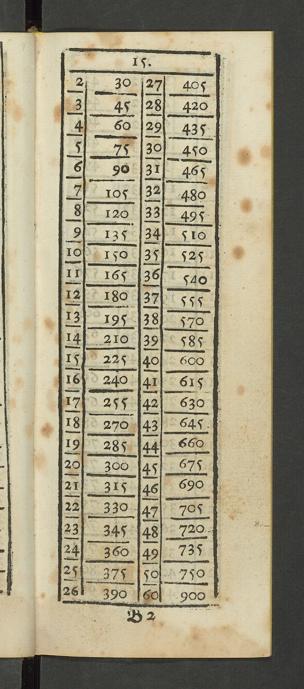 15.
2 30 27 405
3 45 28 420
4 60 29 435
5 75 30 450
6 90 31 465
7 105 32 480
8 120 33 495
9 135 34 510
10 150 35 525
11 165 36 540
12 180 37 555
13 195 38 570
14 210 39 585
15 225 40 600
16 240 41 615
17 255 42 630
18 270 43 645
19 285 44 660
20 300 45 675
21 315 46 690
22 330 47 705
23 345 48 720
24 360 49 735
25 375 50 750
26 390 60 900
B 2